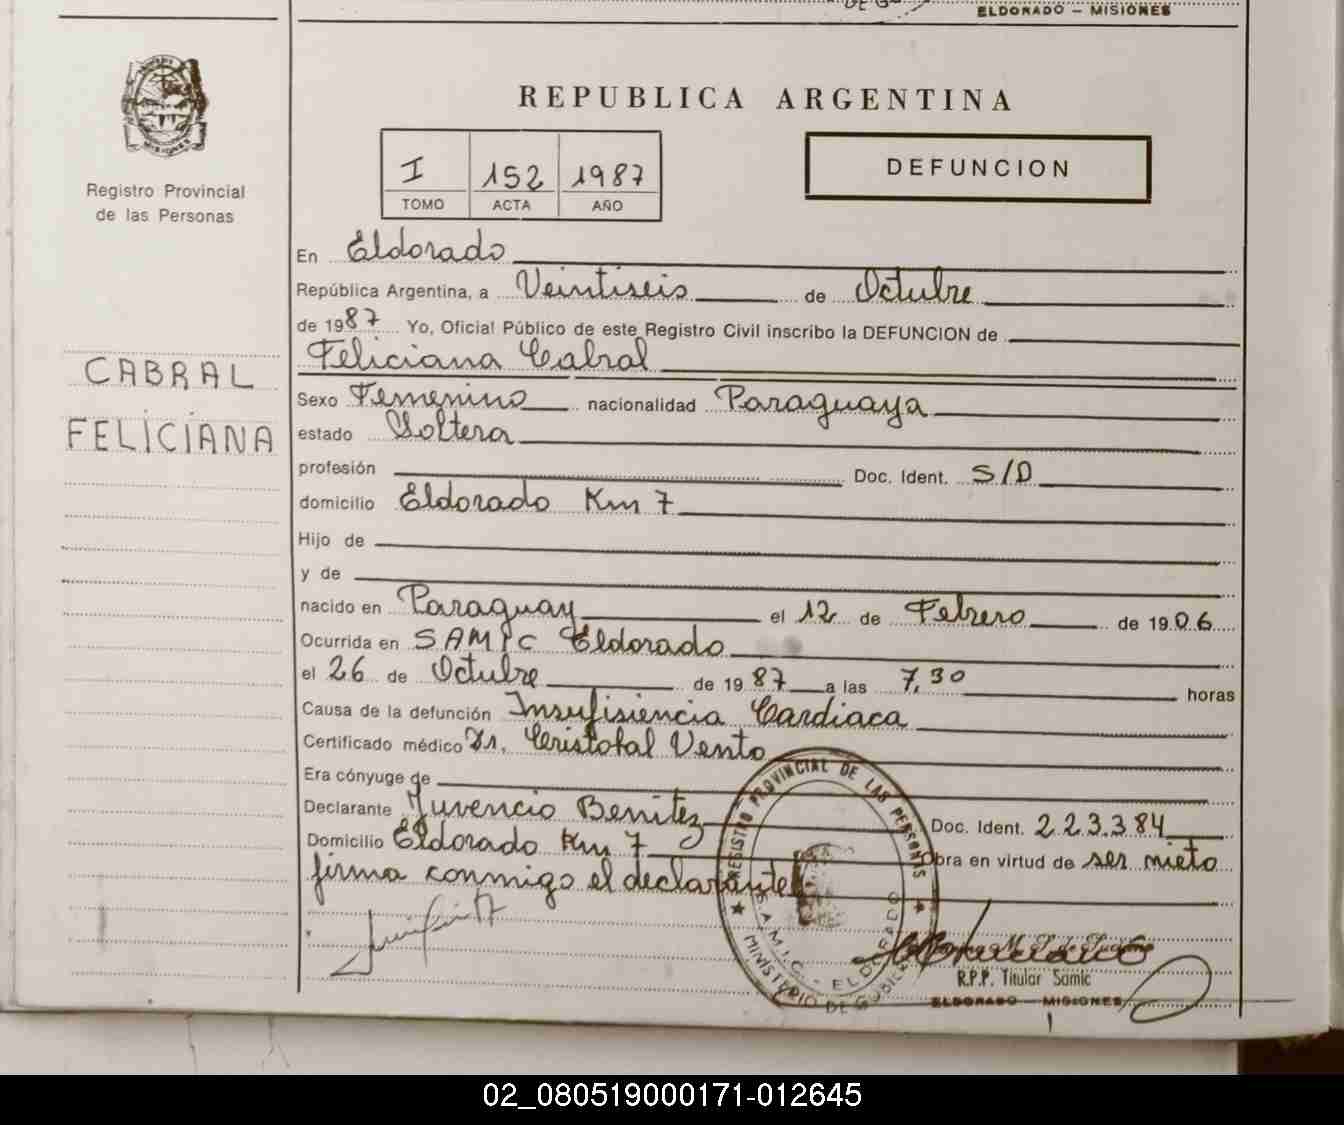 ELDORADO – MISIONES
MISIONES
Registro Provincial
de las Personas
CABRAL
FELICIANA
REPUBLICA ARGENTINA
I 152 1987
TOMO ACTA AÑO
DEFUNCION
En Eldorado
República Argentina, a Veintiseis de Octubre
de 1987 Yo, Oficial Público de este Registro Civil inscribo la DEFUNCION de
Feliciana Cabral
Sexo Femenino nacionalidad Paraguaya
estado Soltera
profesión Doc. Ident. S/D
domicilio Eldorado Km 7
Hijo de
y de
nacido en Paraguay el 12 de Febrero de 1906
Ocurrida en SAMIC Eldorado
el 26 de Octubre de 1987 a las 7,30 horas
Causa de la defunción Insufisiencia Cardiaca
Certificado médico Dr. Cristobal Vento
Era cónyuge de
Declarante Juvencio Benitez Doc. Ident. 223.384
Domicilio Eldorado Km 7 Obra en virtud de ser nieto
firma conmigo el declarante
REGISTRO PROVINCIAL DE LAS PERSONAS
S.A.M.I.C. - ELDORADO
MINISTERIO DE GOBIER
R.P.P. Titular Samic
ELDORADO – MISIONES
02_080519000171-012645